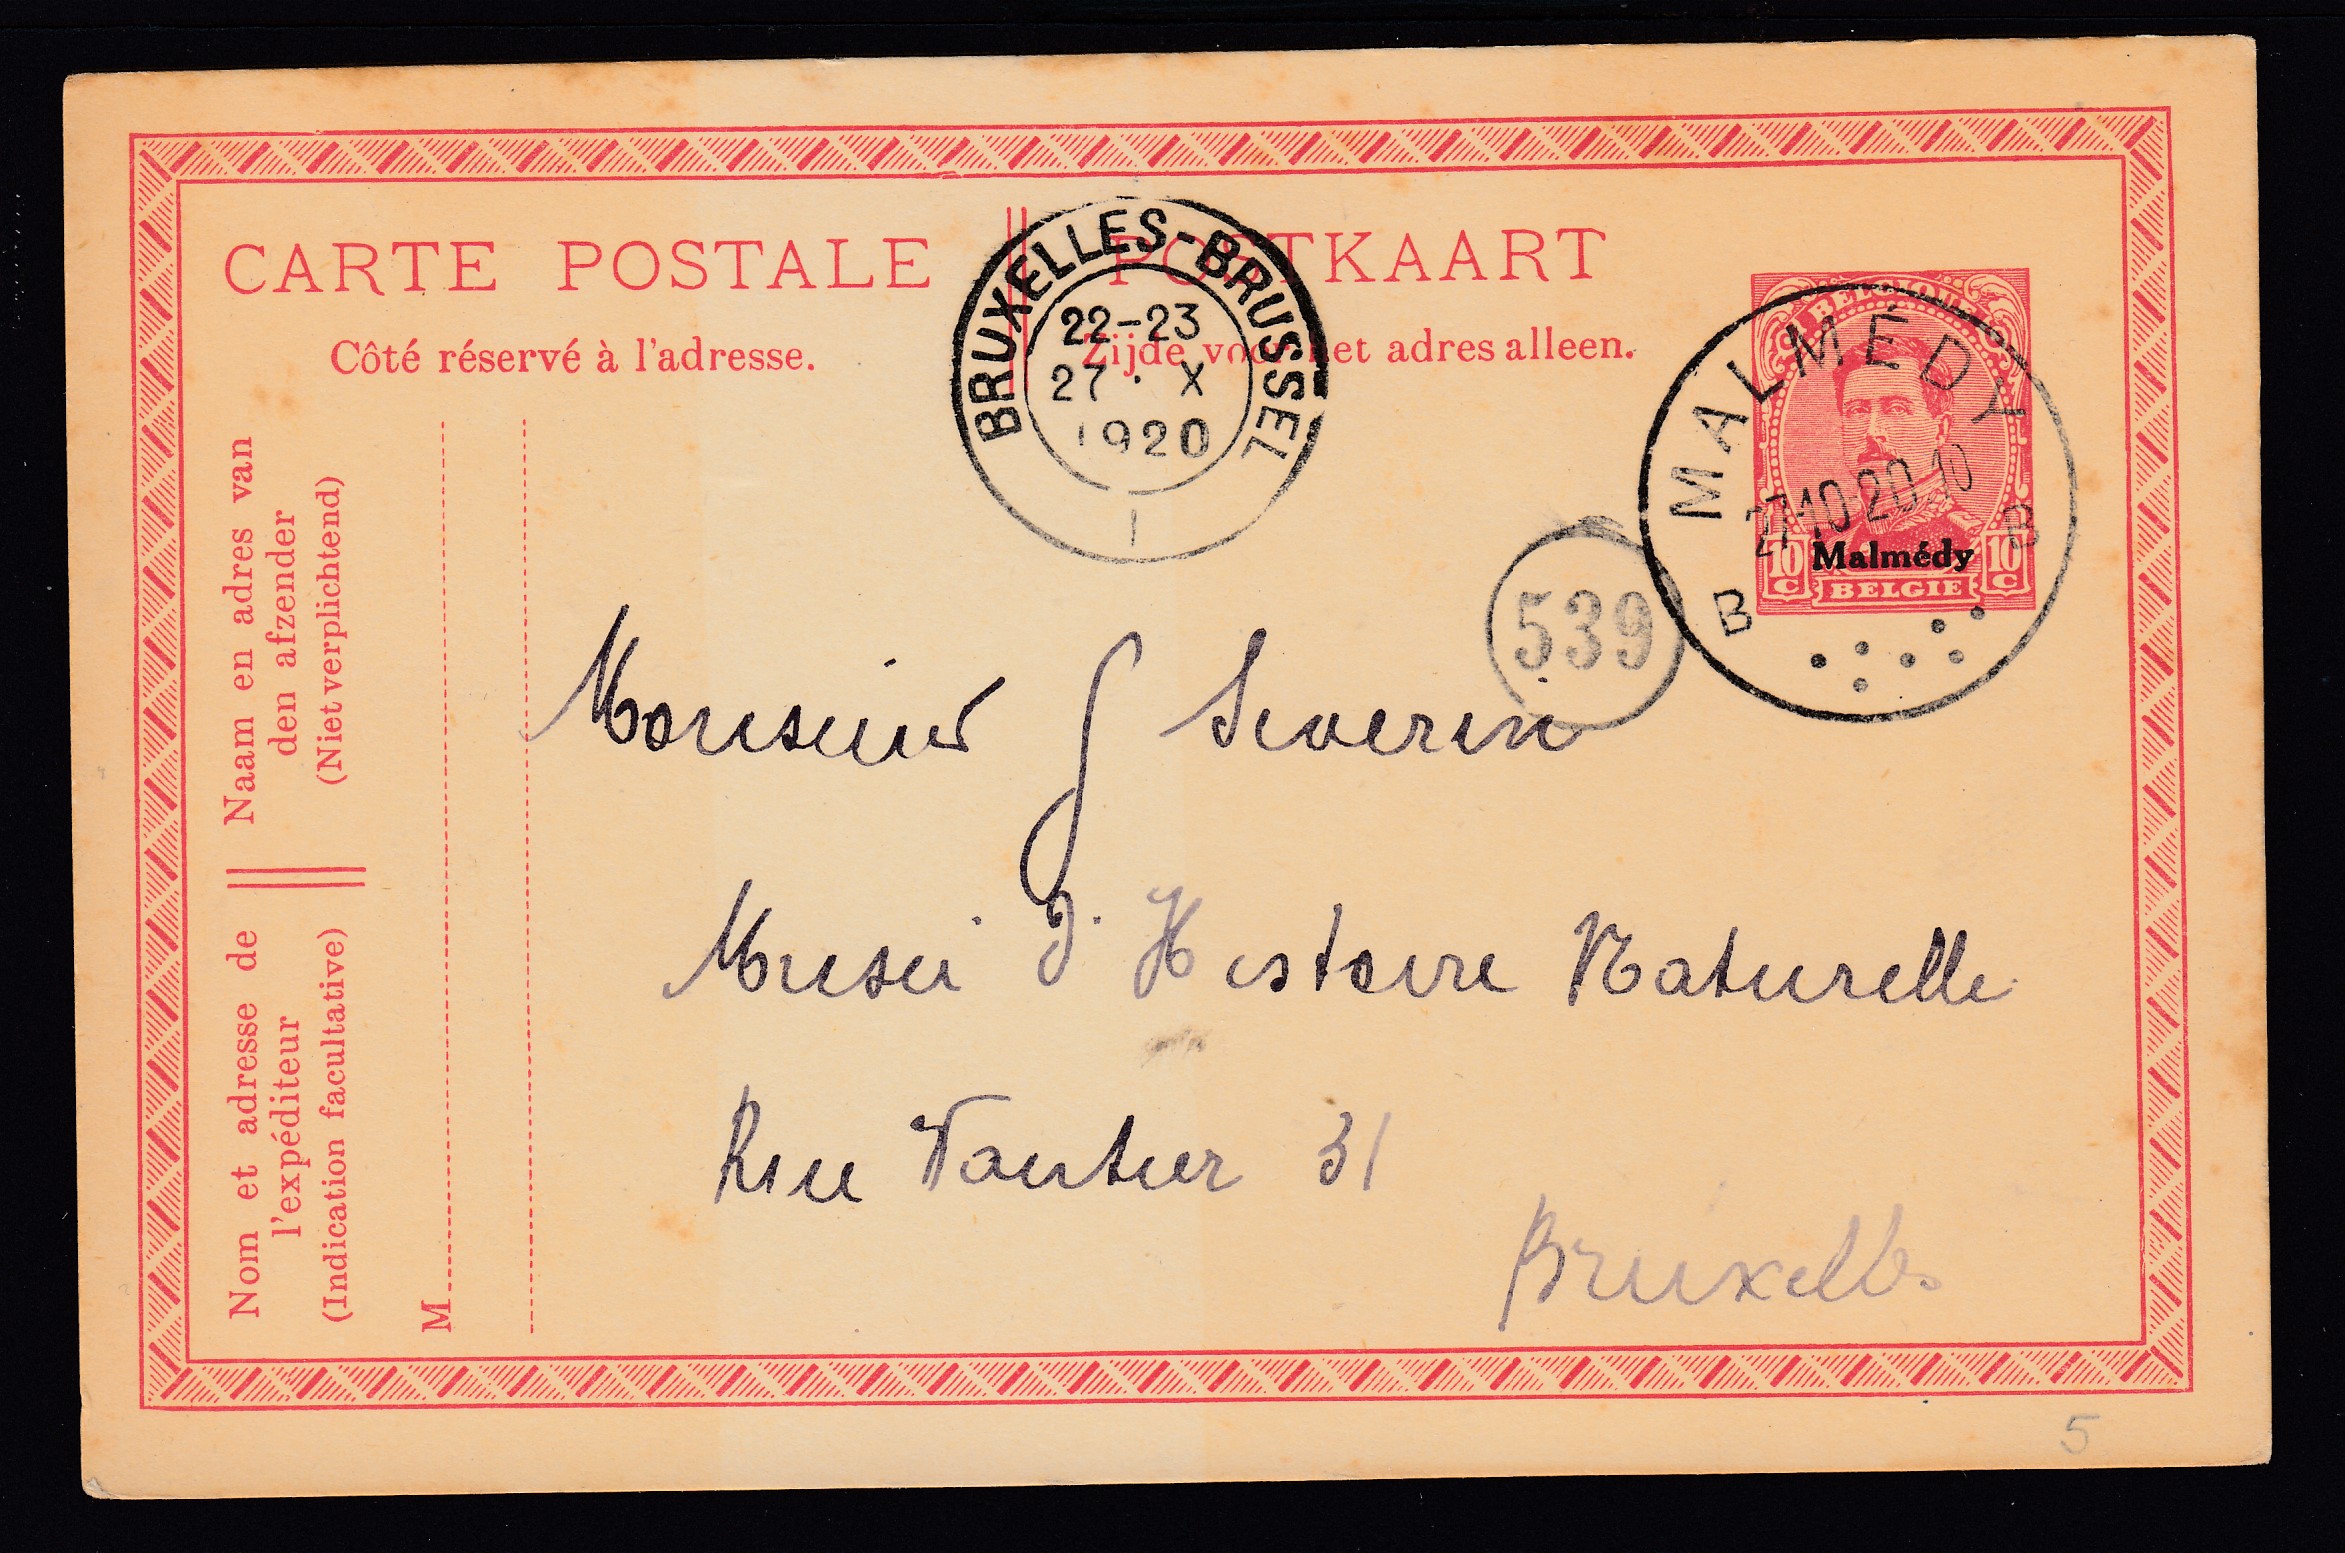 CARTE POSTALE
Côté réservé à l'adresse.
POSTKAART
Zijde voor het adres alleen.
BRUXELLES-BRUSSEL
22-23
27 · X
1920
1
BELGIQUE
MALMÉDY
27-10-20 10
B B
Malmédy
10 C 10 C
BELGIE
539
Naam en adres van
den afzender
(Niet verplichtend)
Nom et adresse de
l'expéditeur
(Indication facultative)
M
Monsieur G Severin
Museé d'Histoire Naturelle
Rue Vautier 31
Bruxelles
5